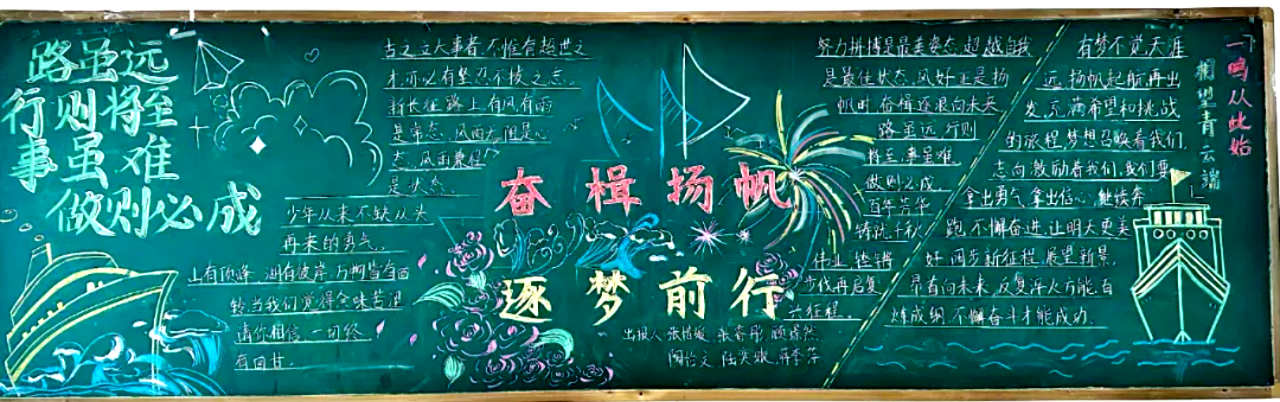 路虽远
行则将至
事虽难
做则必成
古之立大事者,不惟有超世之
才,亦必有坚忍不拔之志。
新长征路上,有风有雨
是常态,风雨无阻是心
态,风雨兼程
是状态。
少年从来不缺从头
再来的勇气。
山有顶峰,湖有彼岸,万物皆有回
转,当我们觉得余味苦涩
请你相信,一切终
有回甘。
奋楫扬帆
逐梦前行
出报人
努力拼搏是最美姿态,超越自我
是最佳状态,风好正是扬
帆时,奋楫逐浪向未来
路虽远,行则
将至,事虽难
做则必成。
百年芳华
铸就千秋
伟业,铿锵
步伐再启复
兴征程。
有梦不觉天涯
远,扬帆起航再出
发,充满希望和挑战
的旅程,梦想召唤着我们,
志向激励着我们,我们要
拿出勇气,拿出信心,继续奔
跑,不懈奋进,让明天更美
好,阔步新征程,展望新景,
昂首向未来,反复淬火方能百
炼成钢,不懈奋斗才能成功.
一鸣从此始
相望青云端